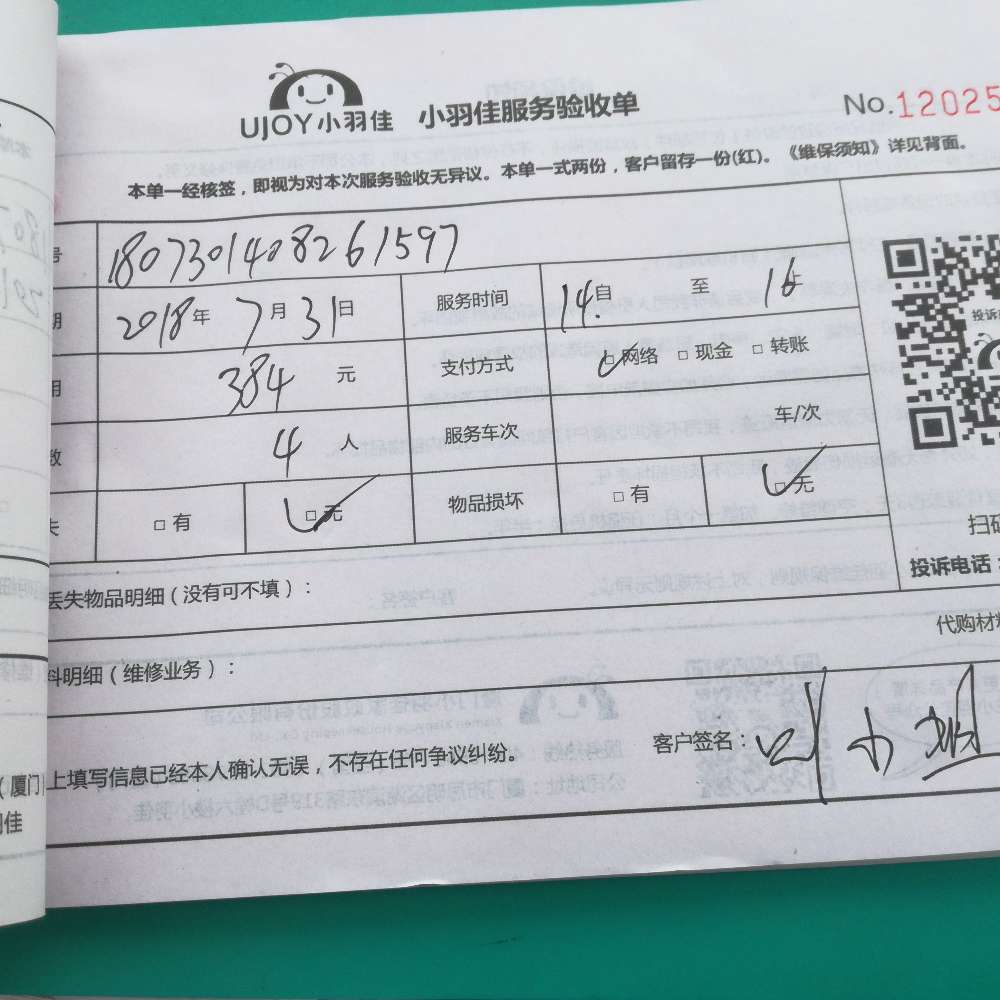 UJOY小羽佳 小羽佳服务验收单 No.12025
本单一经核签，即视为对本次服务验收无异议。本单一式两份，客户留存一份(红)。《维保须知》详见背面。
号 180730140826 1597
期 2018年 7月 31日 服务时间 14.自 至 16
用 384 元 支付方式 网络 □ 现金 □ 转账
数 4 人 服务车次 车/次
失 □ 有 □ 无 物品损坏 □ 有 □ 无
扫码
投诉电话：
丢失物品明细（没有可不填）：
代购材料
料明细（维修业务）：
上填写信息已经本人确认无误，不存在任何争议纠纷。 客户签名：
（厦门
羽佳